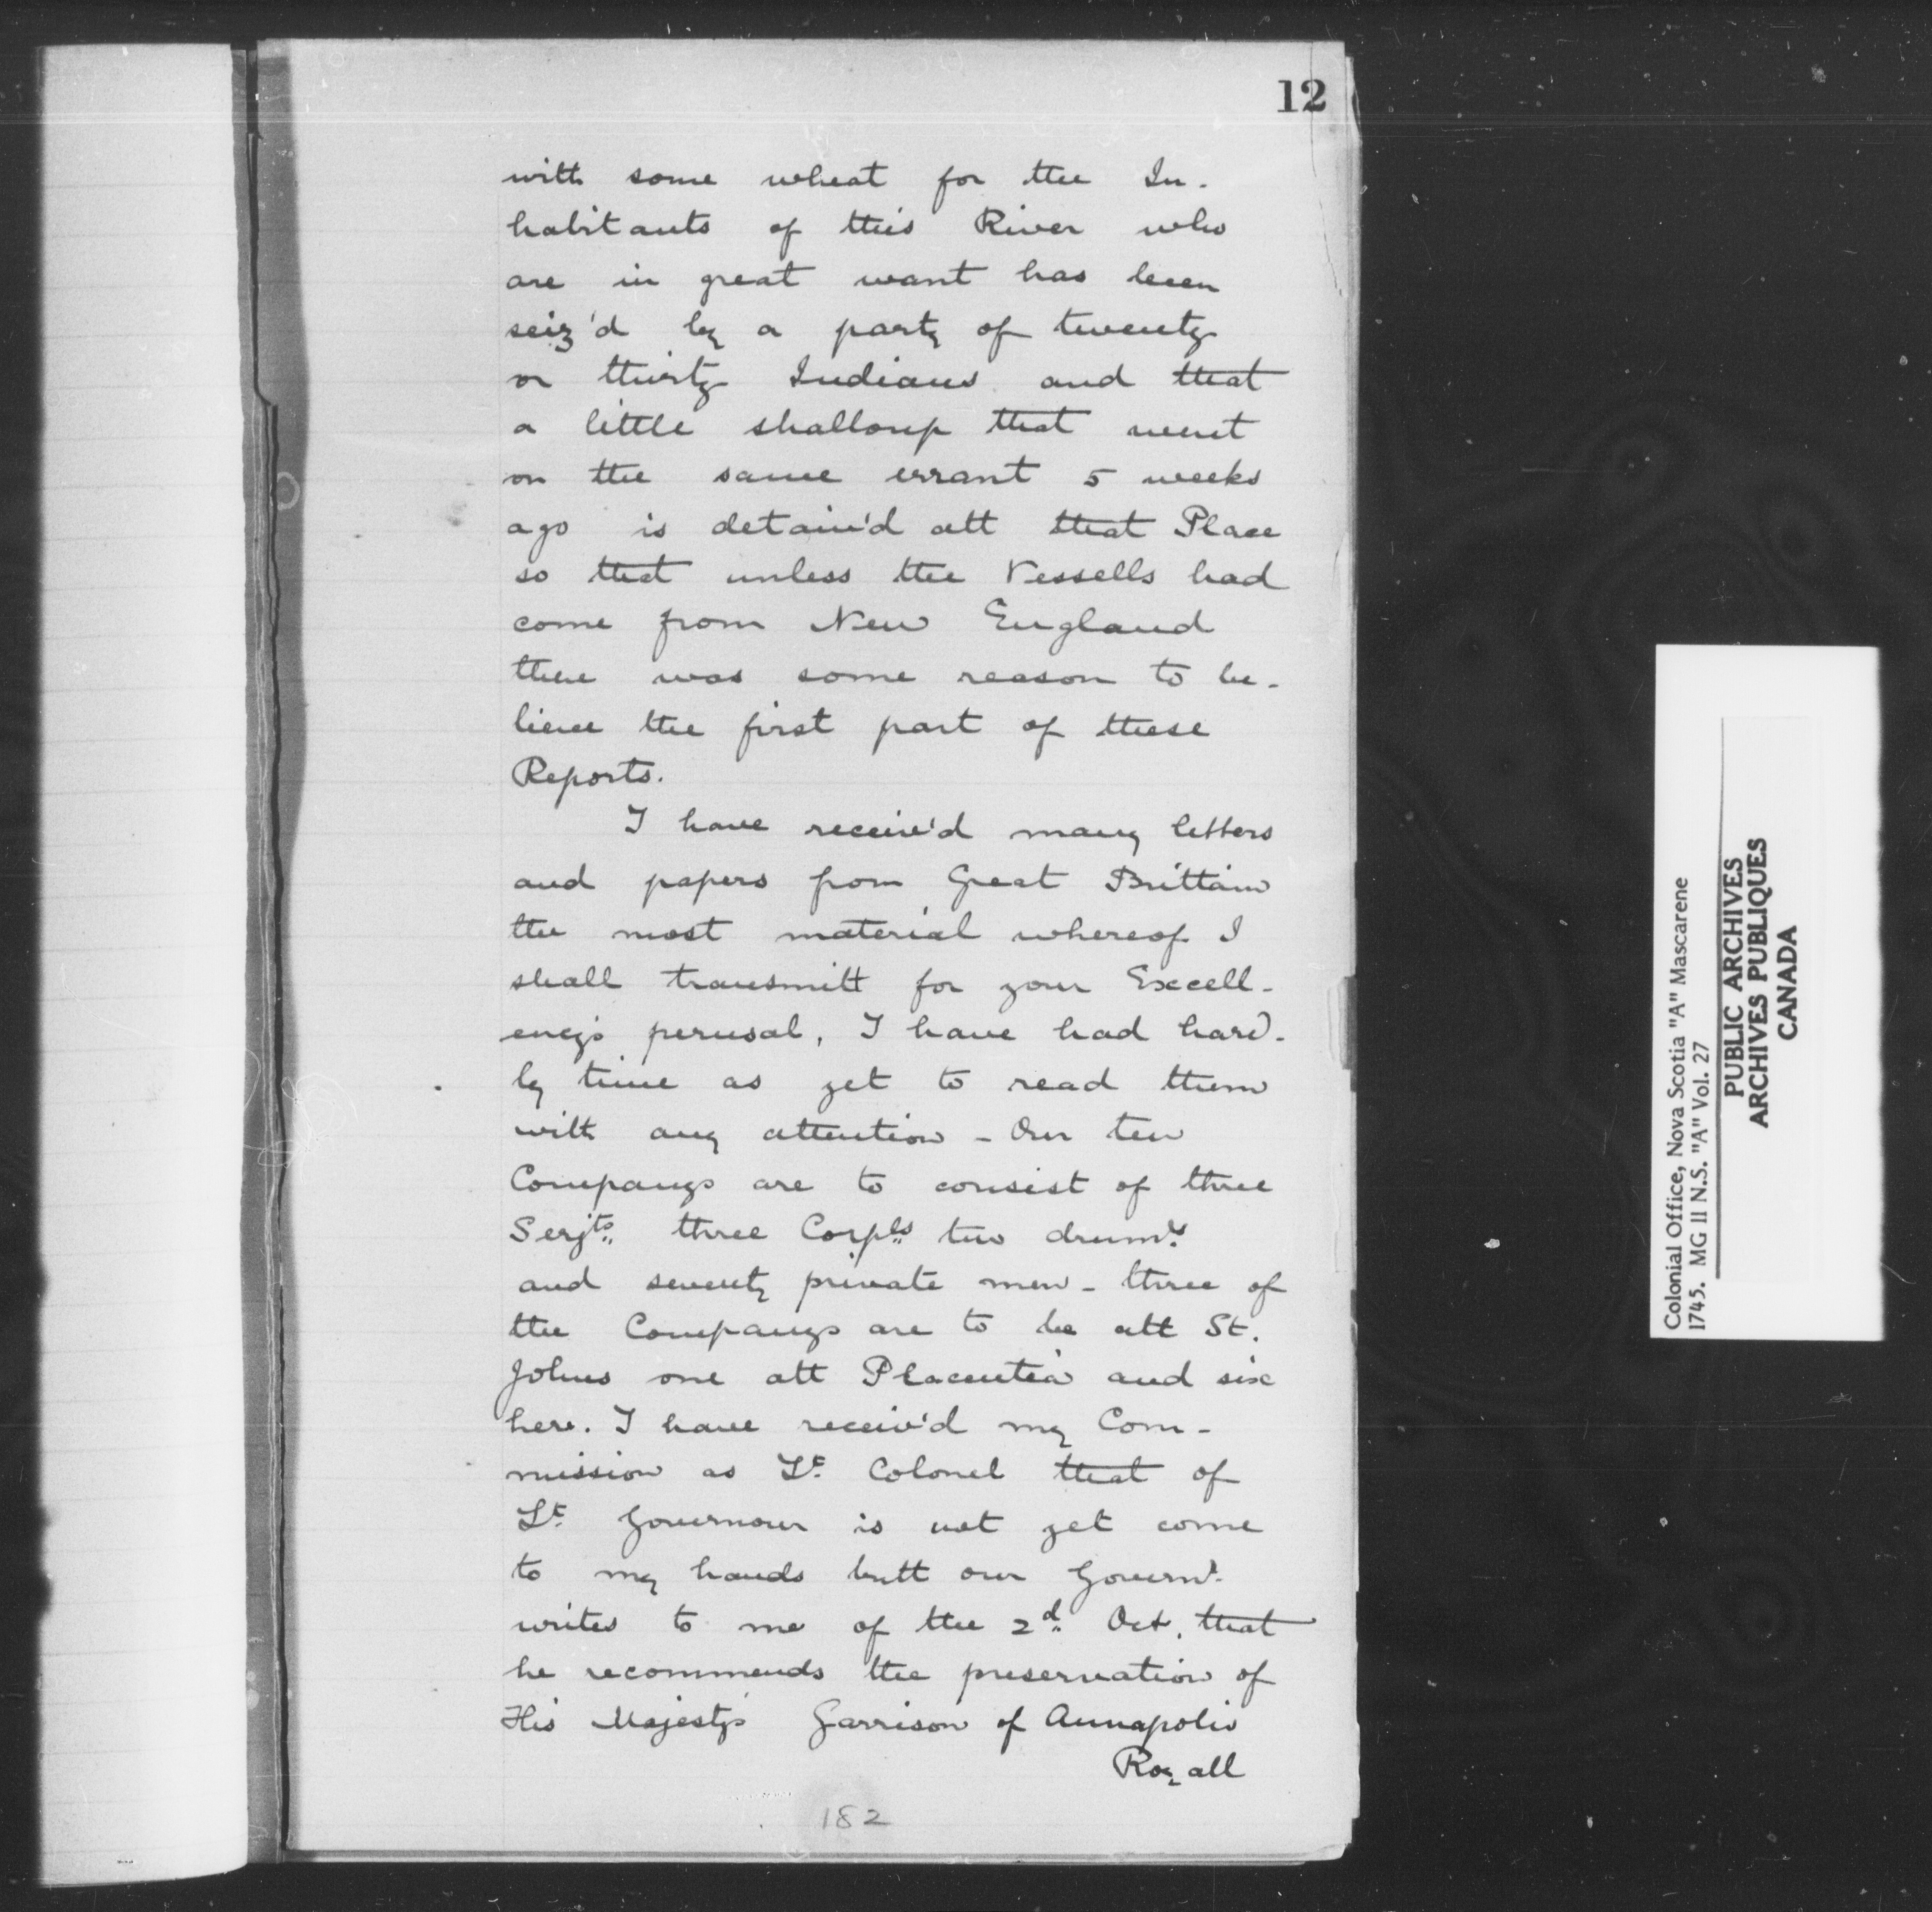 12
with some wheat for the In-
habitants of this River who
are in great want has been
seiz'd by a party of twenty
or thirty Indians and that
a little shalloup that went
on the same errant 5 weeks
ago is detain'd att that Place
so that unless the Vessells had
come from New England
there was some reason to be-
lieve the first part of these
Reports.
I have receiv'd many letters
and papers from Great Brittain
the most material whereof I
shall transmitt for your Excell-
ency's perusal, I have had hard-
ly time as yet to read them
with any attention - Our ten
Companys are to consist of three
Serjts. three Corpls. two drumrs.
and seventy private men - three of
the Companys are to be att St.
Johns one att Placentia and six
here. I have receiv'd my Com-
mission as Lt. Colonel that of
Lt. Governour is not yet come
to my hands butt our Governr.
writes to me of the 2d. Oct. that
he recommends the preservation of
His Majesty's Garrison of Annapolis
Royall
182
Colonial Office, Nova Scotia "A" Mascarene
1745. MG 11 N.S. "A" Vol. 27
PUBLIC ARCHIVES
ARCHIVES PUBLIQUES
CANADA